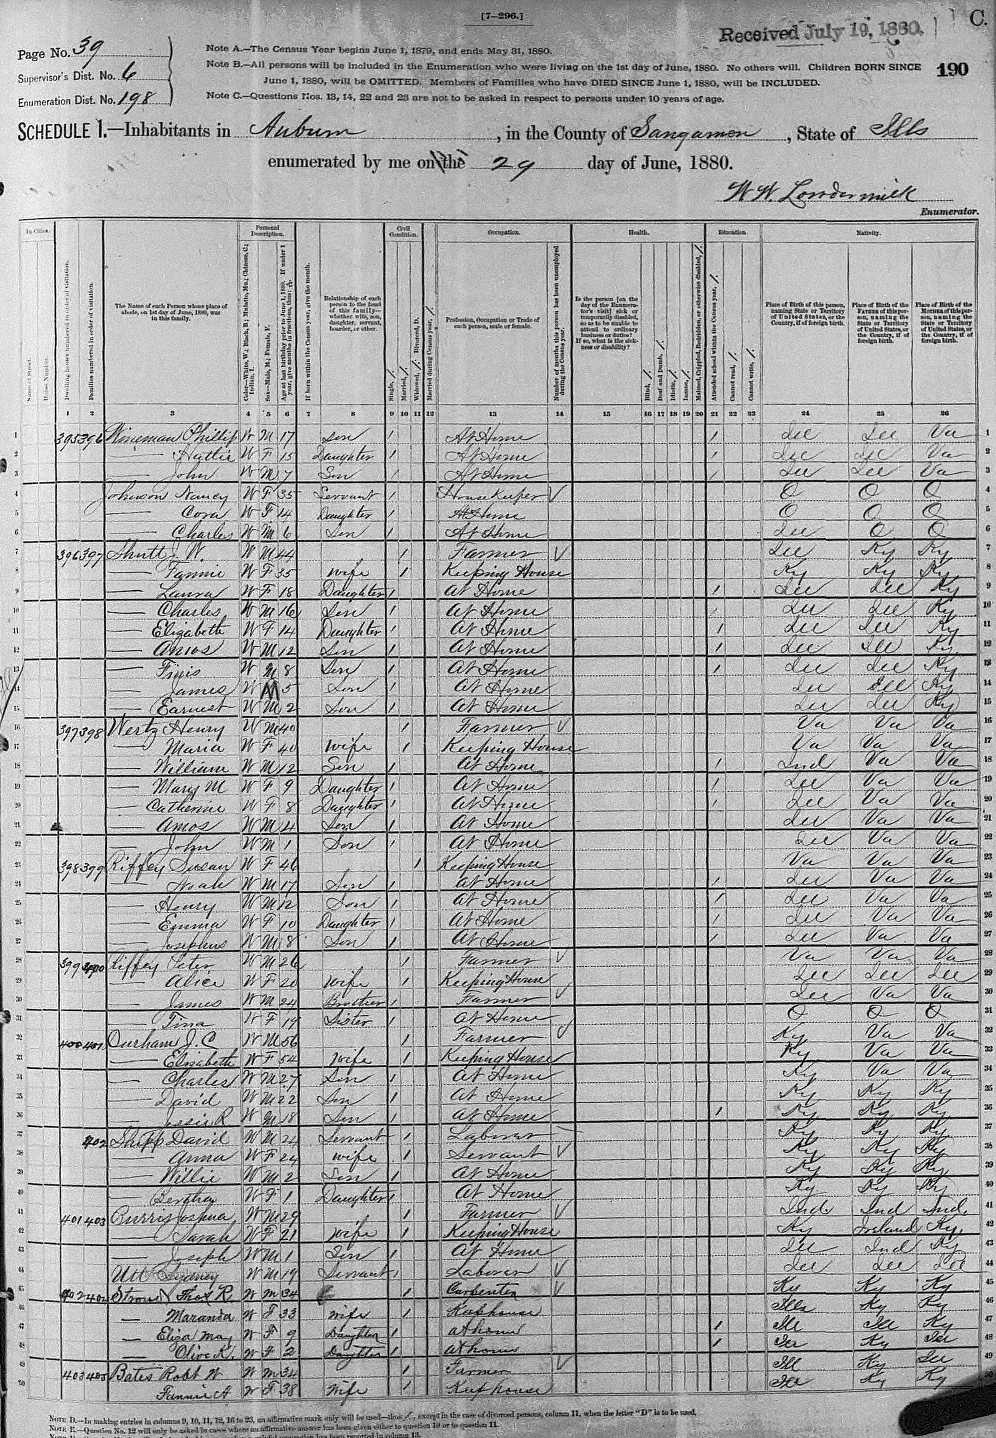 [7-296.]
Received July 19, 1880.
C.
Page No. 39
Supervisor's Dist. No. 6
Enumeration Dist. No. 198
Note A.—The Census Year begins June 1, 1879, and ends May 31, 1880.
Note B.—All persons will be included in the Enumeration who were living on the 1st day of June, 1880. No others will. Children BORN SINCE
June 1, 1880, will be OMITTED. Members of Families who have DIED SINCE June 1, 1880, will be INCLUDED.
Note C.—Questions Nos. 13, 14, 22 and 23 are not to be asked in respect to persons under 10 years of age.
190
SCHEDULE 1.—Inhabitants in Auburn, in the County of Sangamon, State of Ills
enumerated by me on the 29 day of June, 1880.
W. W. Lowdermilk
Enumerator.
In Cities. Personal Description. Civil Condition. Occupation. Health. Education. Nativity.
The Name of each Person whose place of abode, on 1st day of June, 1880, was in this family.
Relationship of each person to the head of this family—whether wife, son, daughter, servant, boarder, or other.
Profession, Occupation or Trade of each person, male or female.
Place of Birth of this person, naming State or Territory of United States, or the Country, if of foreign birth.
1 2 3 4 5 6 7 8 9 10 11 12 13 14 15 16 17 18 19 20 21 22 23 24 25 26
1 395 396 Wineman Phillip W M 17 Son / At Home / Ill Ill Va
2 — Hattie W F 15 Daughter / At Home / Ill Ill Va
3 — John W M 7 Son / At Home / Ill Ill Va
4 Johnson Nancy W F 35 Servant / House Keeper O O O
5 — Cora W F 14 Daughter / At Home O O O
6 — Charles W M 6 Son / At Home Ill O O
7 396 397 Shutt J. W. W M 44 / Farmer Ill Ky Ky
8 — Fannie W F 35 Wife / Keeping House Ky Ky Ky
9 — Laura W F 18 Daughter / At Home / Ill Ill Ky
10 — Charles W M 16 Son / At Home / Ill Ill Ky
11 — Elizabeth W F 14 Daughter / At Home / Ill Ill Ky
12 — Amos W M 12 Son / At Home / Ill Ill Ky
13 — Finis W M 8 Son / At Home / Ill Ill Ky
14 — James W M 5 Son / At Home Ill Ill Ky
15 — Earnest W M 2 Son / At Home Ill Ill Ky
16 397 398 Wertz Henry W M 40 / Farmer Va Va Va
17 — Maria W F 40 Wife / Keeping House Va Va Va
18 — William W M 12 Son / At Home / Ind Va Va
19 — Mary M W F 9 Daughter / At Home / Ill Va Va
20 — Catherine W F 8 Daughter / At Home / Ill Va Va
21 — Amos W M 4 Son / At Home Ill Va Va
22 — John W M 1 Son / At Home Ill Va Va
23 398 399 Riffey Susan W F 46 / Keeping House Va Va Va
24 — Noah W M 17 Son / At Home / Ill Va Va
25 — Henry W M 12 Son / At Home / Ill Va Va
26 — Emma W F 10 Daughter / At Home / Ill Va Va
27 — Josephus W M 8 Son / At Home / Ill Va Va
28 399 400 Riffey Peter W M 26 / Farmer Va Va Va
29 — Alice W F 20 Wife / Keeping House Ill Ill Ill
30 — James W M 24 Brother / Farmer Ill Va Va
31 — Tina W F 19 Sister / At Home O O O
32 400 401 Durham J. C W M 56 / Farmer Ky Va Va
33 — Elizabeth W F 54 Wife / Keeping House Ky Va Va
34 — Charles W M 27 Son / At Home Ky Va Va
35 — David W M 22 Son / At Home Ky Ky Ky
36 — Jessie R W M 18 Son / At Home / Ky Ky Ky
37 402 Shipp David W M 24 Servant / Laborer Ky Ky Ky
38 — Anna W F 24 Wife / Servant Ky Ky Ky
39 — Willie W M 2 Son / At Home Ky Ky Ky
40 — Bertha W F 1 Daughter / At Home Ky Ky Ky
41 401 403 Burris Joshua W M 29 / Farmer Ind Ind Ind
42 — Sarah W F 21 Wife / Keeping House Ky Ireland Ky
43 — Joseph W M 1 Son / At Home Ill Ind Ky
44 Utt Sydney W M 19 Servant / Laborer Ill Ill Ill
45 402 404 Stroud Thos R W M 34 / Carpenter Ky Ky Ky
46 — Maranda W F 33 Wife / Keep house Ills Ky Ky
47 — Eliza May W F 9 Daughter / at home / Ill Ill Ky
48 — Olive K. W F 2 Daughter / at home / Ill Ky Ill
49 403 405 Bates Robt W W M 34 / Farmer Ill Ky Ill
50 — Fannie A W F 38 Wife / Keep house Ill Ky Ky
Note D.—In making entries in columns 9, 10, 11, 12, 16 to 23, an affirmative mark only will be used—thus /, except in the case of divorced persons, column 11, when the letter "D" is to be used.
Note E.—Question No. 12 will only be asked in cases where an affirmative answer has been given either to question 10 or to question 11.